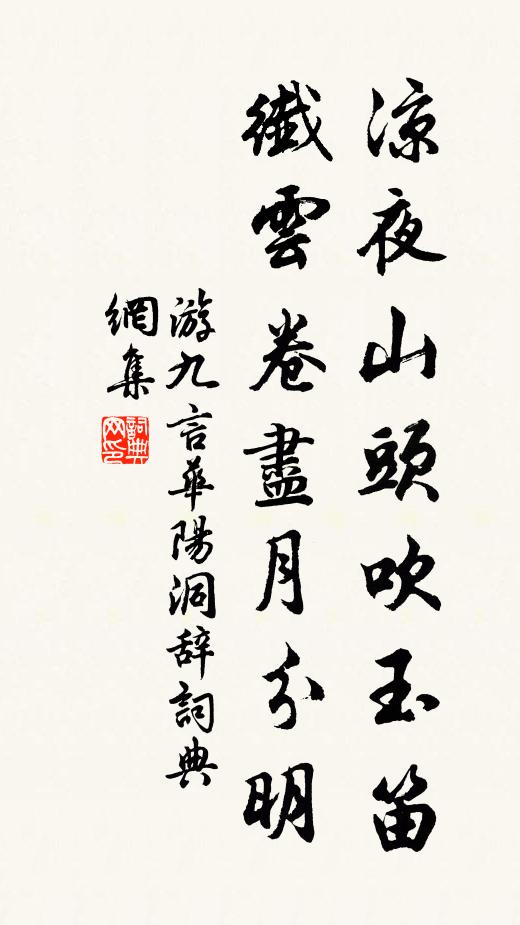 涼夜山頭吹玉笛
纖雲卷盡月分明
游九言華陽洞辞詞典
網集
詞典
网印